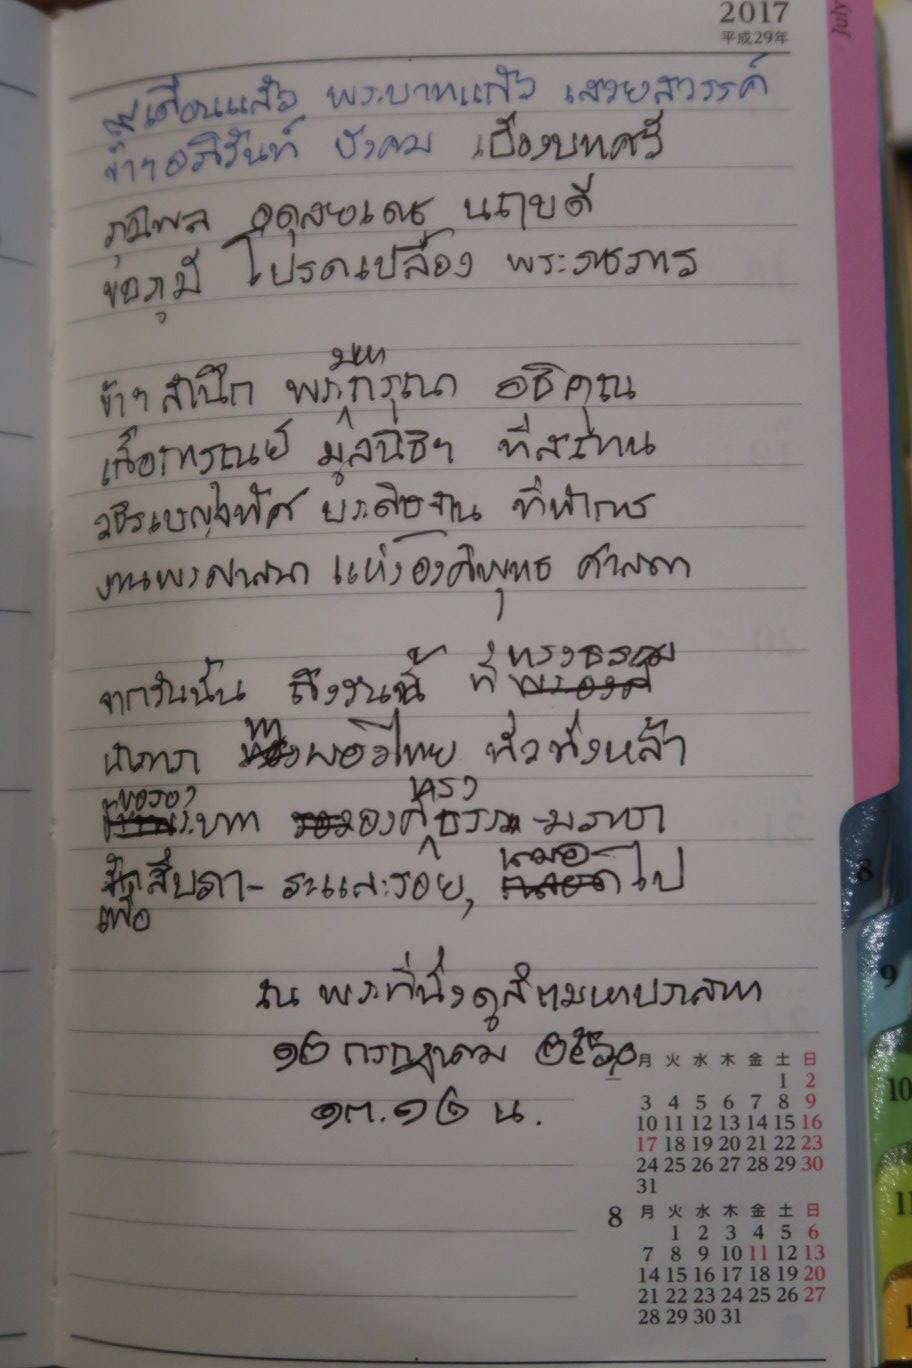 2017
平成29年
July
สี่เดือนแล้ว พระบาทแก้ว เสวยสวรรค์
ข้าฯอภิวันท์ บังคม เบื้องบทศรี
ภูมิพล อดุลยเดช นฤบดี
ขอภูมี โปรดเปลื้อง พระราชภาร
ข้าฯ สำนึก พระมหากรุณา อธิคุณ
เกื้อการุณย์ มูลนิธิฯ ที่สถาน
วชิรเบญจทิศ ประดิษฐาน ที่ทำการ
งานพระศาสนา แห่งองค์พุทธ ศาสดา
จากวันนั้น ถึงวันนี้ ที่ทรงธรรม
นำพา พอไทย ทั่วทั้งหล้า
ขอรองพระบาท องค์ทรงธรรม-มราชา
เพื่อสืบภา- ระและรอย, ไป
ณ พระที่นั่งดุสิตมหาปราสาท
๑๒ กรกฎาคม ๒๕๖๐
๑๓.๑๖ น.
月 火 水 木 金 土 日
1 2
3 4 5 6 7 8 9
10 11 12 13 14 15 16
17 18 19 20 21 22 23
24 25 26 27 28 29 30
31
8 月 火 水 木 金 土 日
1 2 3 4 5 6
7 8 9 10 11 12 13
14 15 16 17 18 19 20
21 22 23 24 25 26 27
28 29 30 31
8
9
10
11